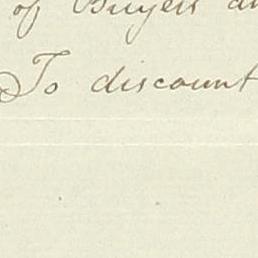 of Buyers
To discount